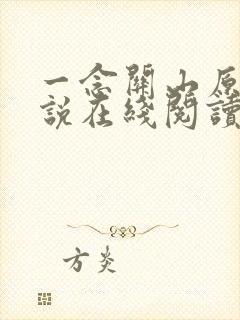 一念關山原
說在綫閱讀
方炎